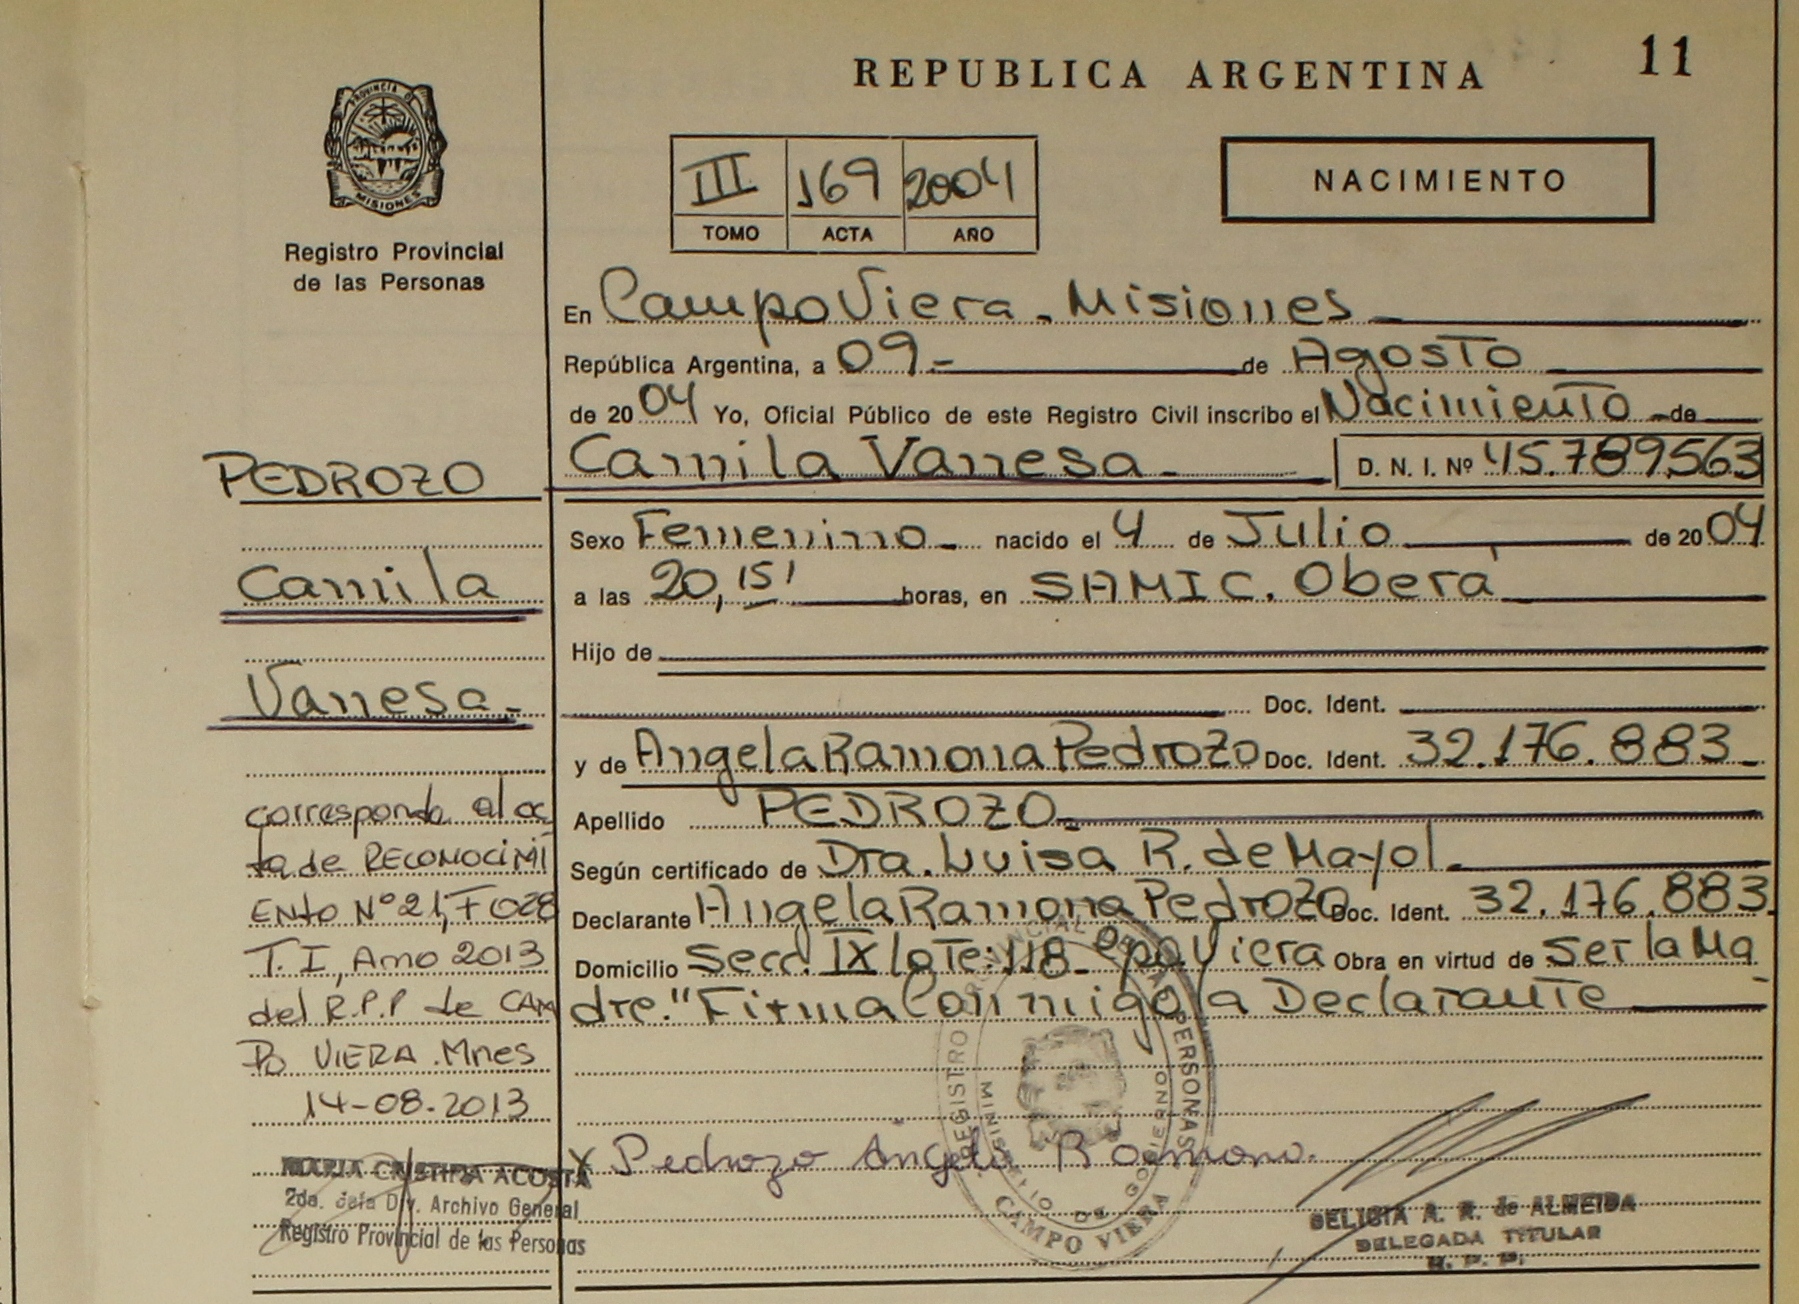 REPUBLICA ARGENTINA
11
PROVINCIA DE
MISIONES
Registro Provincial
de las Personas
III 169 2004
TOMO ACTA AÑO
NACIMIENTO
En Campo Viera - Misiones
República Argentina, a 09.- de Agosto
de 2004 Yo, Oficial Público de este Registro Civil inscribo el Nacimiento de
Camila Vanesa.- D. N. I. Nº 45.789563
Sexo Femenino nacido el 4 de Julio de 2004
a las 20,15' horas, en SAMIC. Oberá
Hijo de
Doc. Ident.
y de Angela Ramona Pedrozo Doc. Ident. 32.176.883.-
Apellido PEDROZO.-
Según certificado de Dra. Luisa R. de Mayol.
Declarante Angela Ramona Pedrozo Doc. Ident. 32.176.883
Domicilio Secc. IX Lote: 118- Cpo Viera Obra en virtud de Ser la Ma
dre." Firma Conmigo la Declarante
PEDROZO
Camila
Vanesa.-
corresponde al ac
ta de RECONOCIMI
ENto Nº 21, Fº 028
T. I, Amo 2013
del R.P.P de CAM
Po VIERA .Mnes
14-08-2013
MARIA CRISTINA ACOSTA
2da. Jefa Div. Archivo General
Registro Provincial de las Personas
X Pedrozo Angela Ramona.
REGISTRO PROVINCIAL DE LAS PERSONAS
MINISTERIO DE GOBIERNO
CAMPO VIERA
DELICIA A. R. de ALMEIDA
DELEGADA TITULAR
R. P. P.